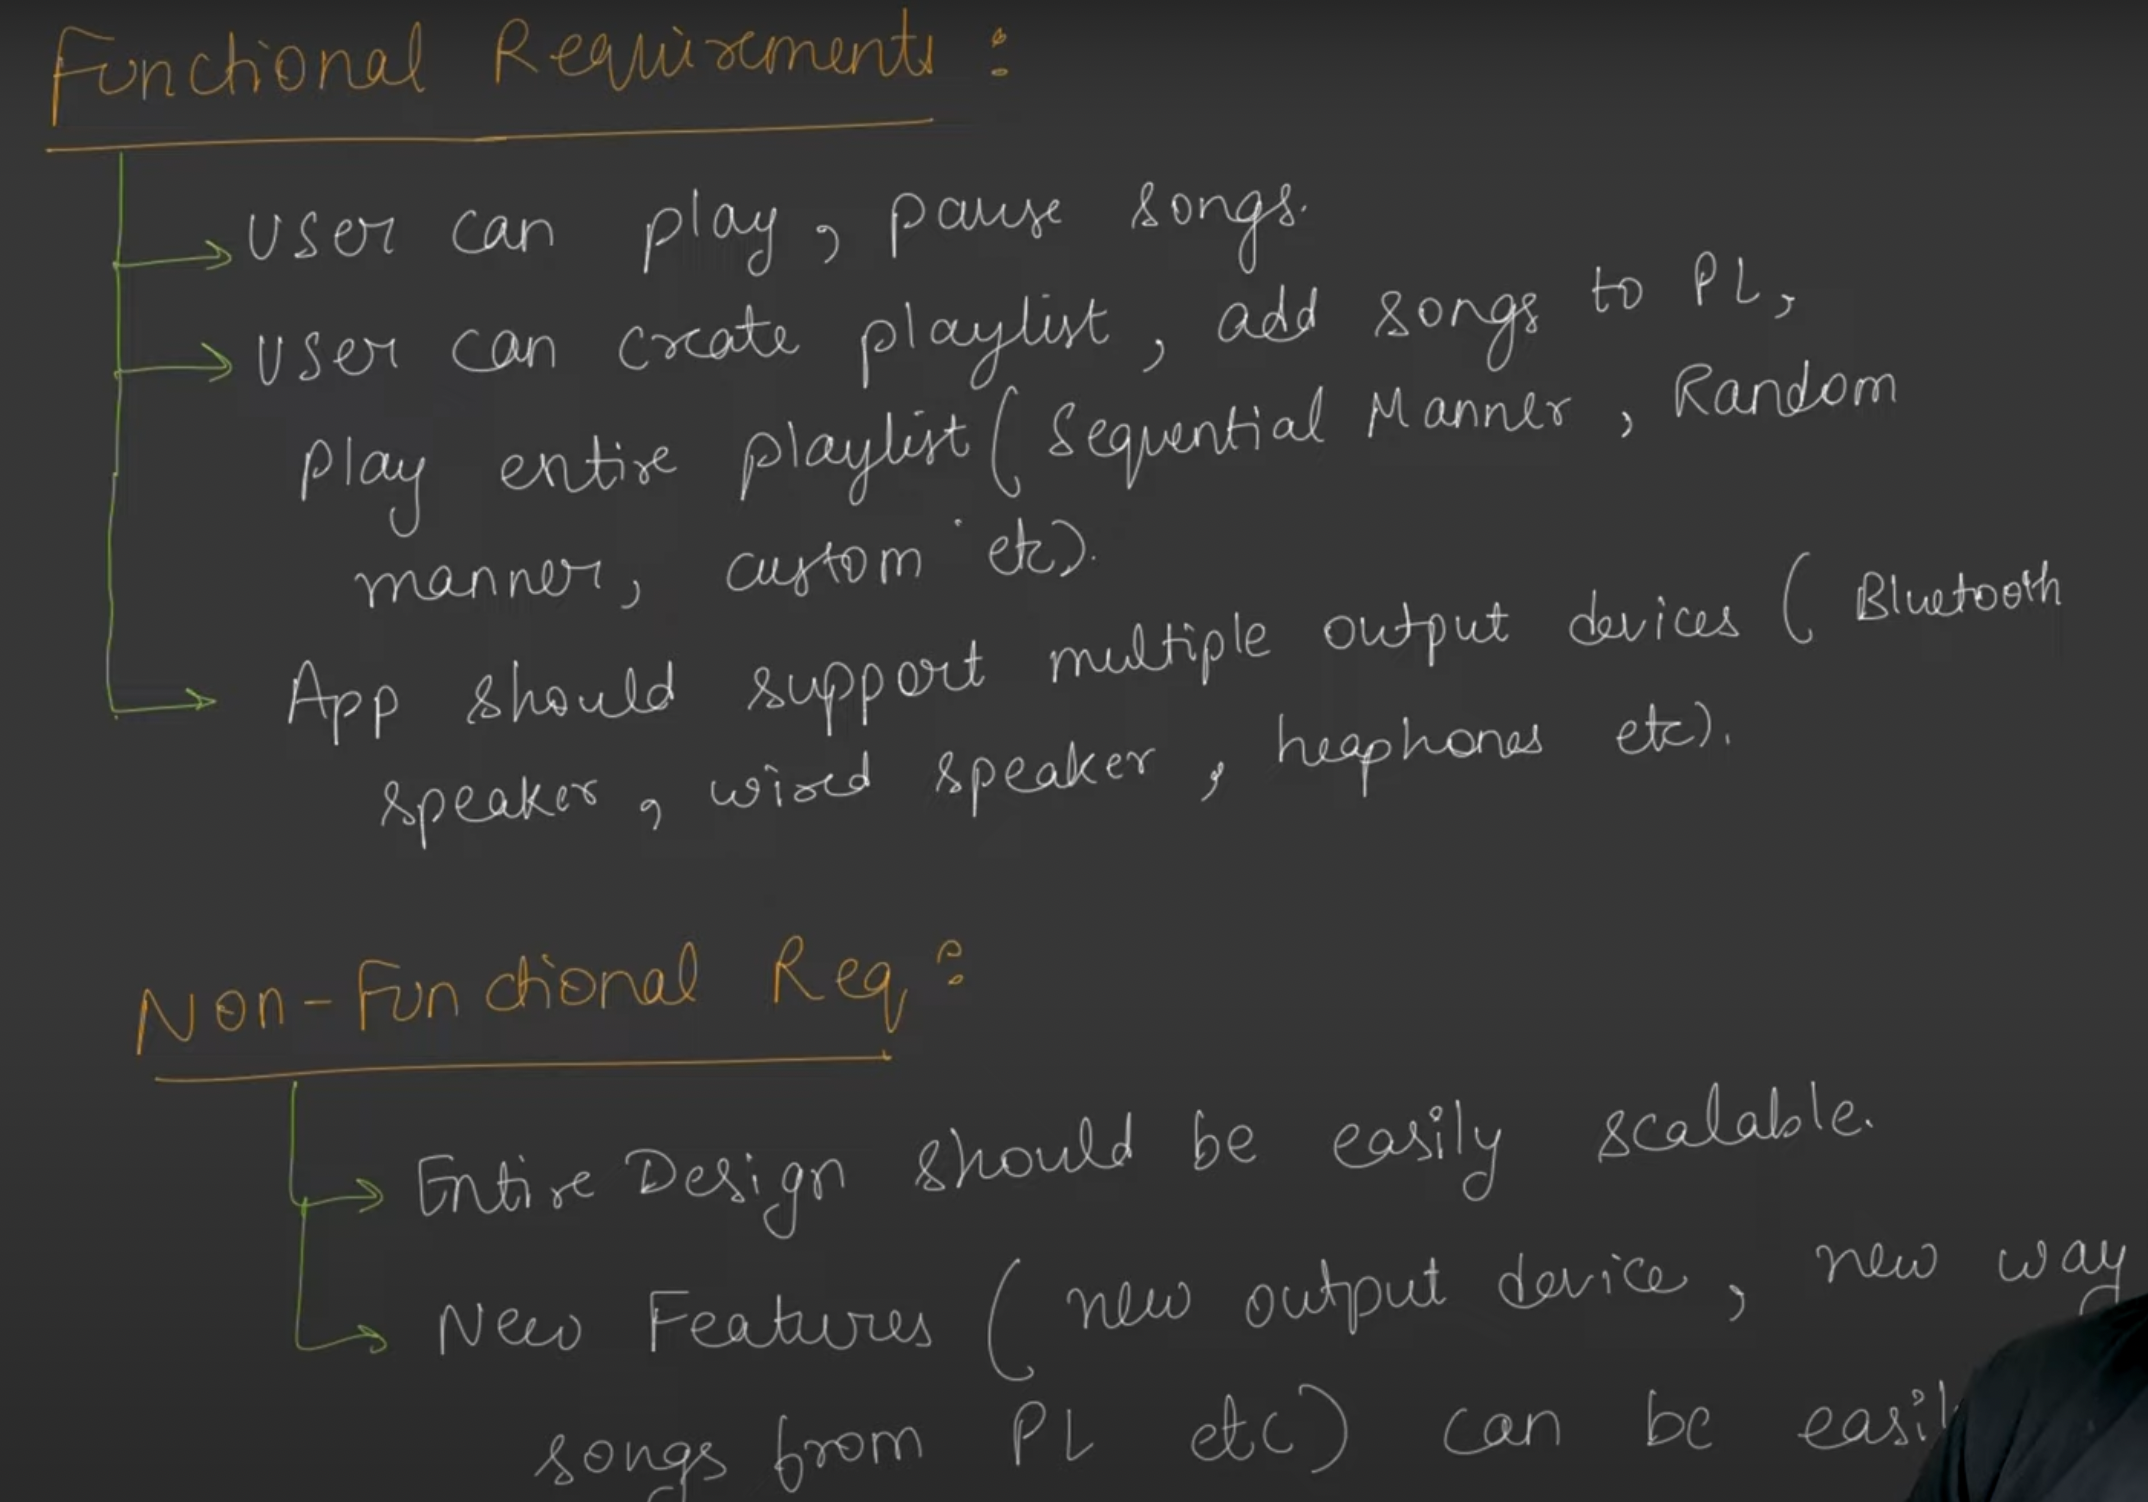 Functional Requirements :
User can play, pause songs.
User can create playlist, add songs to PL,
play entire playlist (Sequential Manner, Random
manner, custom etc).
App should support multiple output devices (Bluetooth
speaker, wired speaker, heaphones etc).
Non-Functional Req :
Entire Design should be easily scalable.
New Features (new output device, new way
songs from PL etc) can be